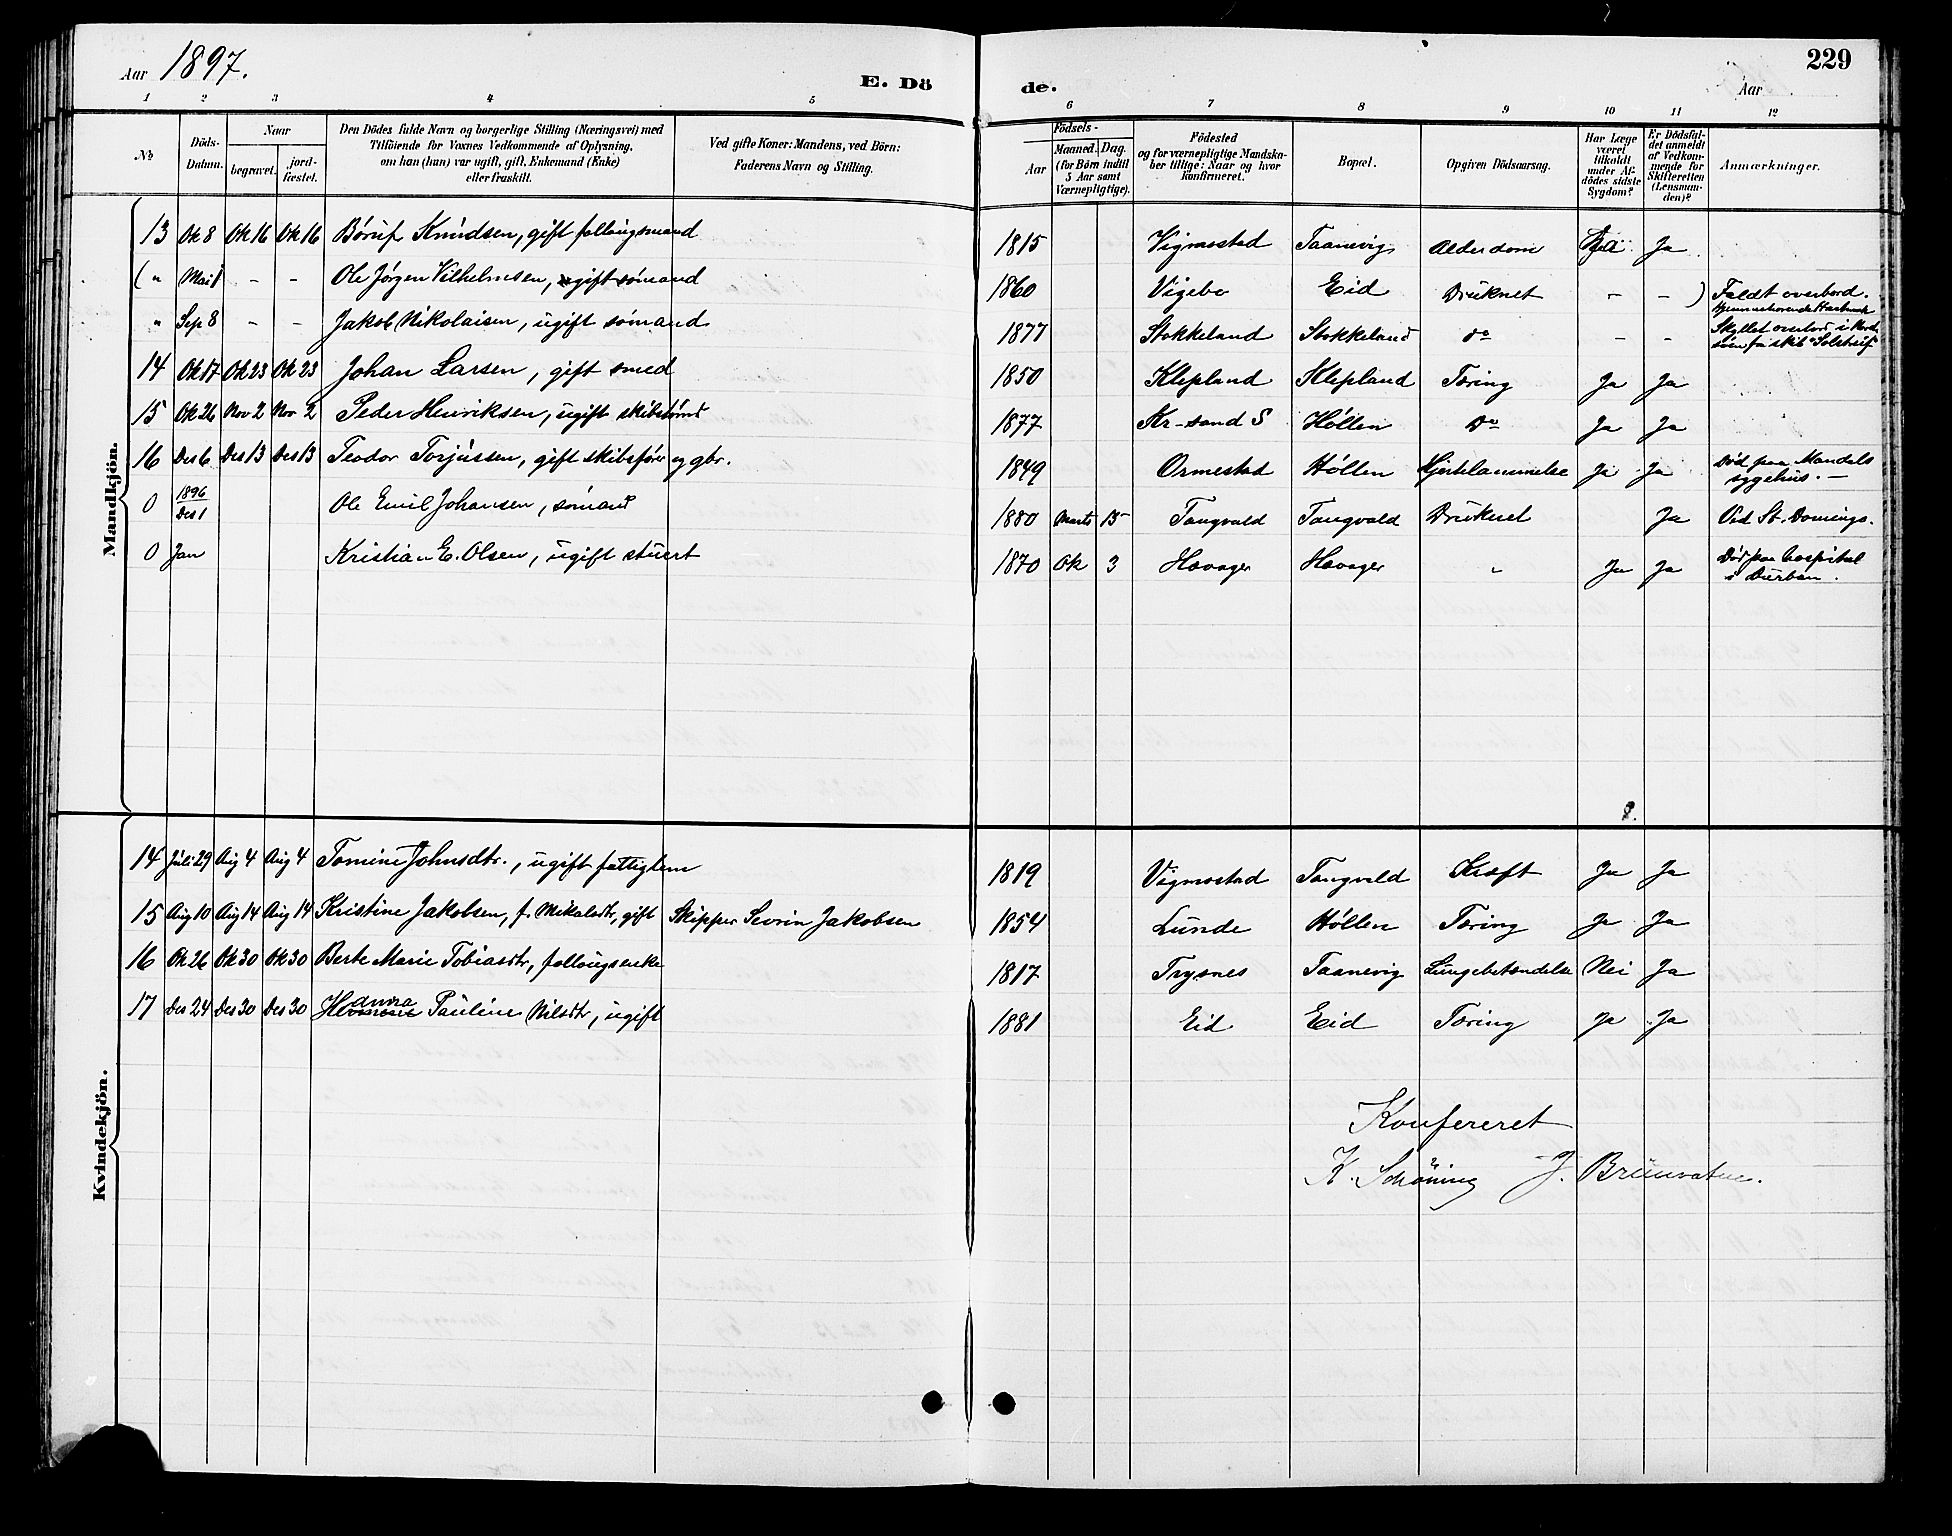 Aar 1897. E. Dö de. Aar 229
1 2 3 4 5 6 7 8 9 10 11 12
№ Döds-Datum. Naar begravet. jordfæstet. Den Dödes fulde Navn og borgerlige Stilling (Næringsvei) med Tilföiende för Voxnes Vedkommende af Oplysning, om han (hun) var ugift, gift, Enkemand (Enke) eller fraskilt. Ved gifte Koner: Mandens, ved Börn: Faderens Navn og Stilling. Födsels- Aar Maaned. Dag. (for Börn indtil 5 Aar samt Værnepligtige). Födested og for værnepligtige Mandskaber tillige: Naar og hvor konfirmeret. Bopæl. Opgiven Dödsaarsag. Har Læge været tilkaldt under Afdödes sidste Sygdom? Er Dödsfaldet anmeldt af Vedkommende for Skifteretten (Lensmanden)? Anmærkninger.
Mandkjön.
13 Ok 8 Ok 16 Ok 16 Børuf Knudsen, gift follougsmand 1815 Vigmostad Taanevig Alderdom Ja
( " Mai 1 - - Ole Jørgen Vilhelmsen, gift sømand 1860 Vigebo Eid Druknet - - ) Faldt overbord.
" Sep 8 - - Jakob Nikolaisen, ugift sømand 1877 Stokkeland Stokkeland do - - Skyllet overbord i Nordsøen fra skib "Solstrug"
14 Ok 17 Ok 23 Ok 23 Johan Larsen, gift smed 1850 Klepland Klepland Tæring Ja Ja
15 Ok 26 Nov 2 Nov 2 Peder Henriksen, ugift skibstømd 1877 Kr-sand S Høllen Do Ja Ja
16 Des 6 Des 13 Des 13 Teodor Torjussen, gift skibsfører og gbr. 1849 Ormestad Høllen Hjertelammelse Ja Ja Død paa Mandals sygehus. -
0 1896 Des 1 Ole Emil Johansen, sømand 1880 Marts 15 Tangvald Tangvald Druknet Ja Ved St. Domingo.
0 Jan Kristian E. Olsen, ugift stuert 1870 Ok 3 Havager Havager " Ja Ja Død paa hospital i Durban.
Kvindekjön.
14 Juli 29 Aug 4 Aug 4 Tomine Johnsdtr., ugift fattiglem 1819 Vigmostad Tangvald Kræft Ja Ja
15 Aug 10 Aug 14 Aug 14 Kristine Jakobsen, f. Mikalsdtr, gift Skipper Sevrin Jakobsen 1854 Lunde Høllen Tæring Ja Ja
16 Ok 26 Ok 30 Ok 30 Berte Marie Tobiasdtr, follougsenke 1817 Trysnes Taanevig Lungebetændelse Nei Ja
17 Des 24 Des 30 Des 30 Pauline Nilsdtr, ugift 1881 Eid Eid Tæring Ja Ja
Konfereret
K. Schöning J. Brunvatne.